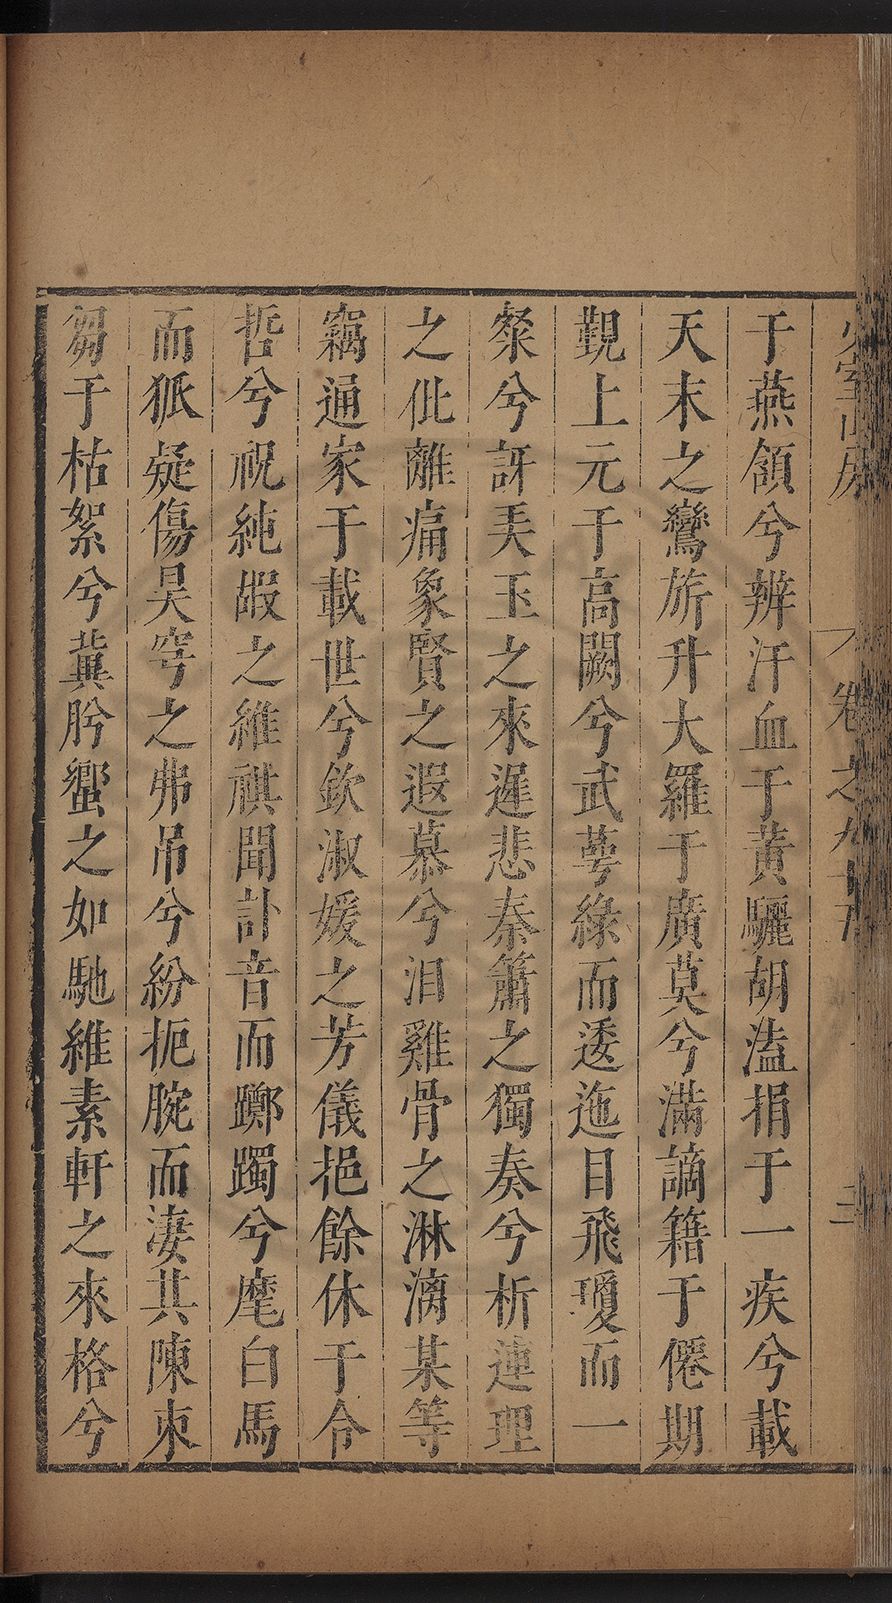 少室山房 卷之九十 三
于燕頷兮辨汗血于黃驪胡溘捐于一疾兮載
天末之鸞旂升大羅于廣莫兮滿謫籍于僊期
覲上元于高闕兮武萼綠而逶迤目飛瓊而一
粲兮訝美玉之來遲悲秦簫之獨奏兮析連理
之仳離痛象賢之遐慕兮泪雞骨之淋漓某等
竊通家于載世兮欽淑媛之芳儀挹餘休于令
哲兮祝純嘏之維祺聞訃音而躑躅兮麾白馬
而狐疑傷昊穹之弗吊兮紛扼腕而淒其陳束
芻于枯絮兮冀肸蠁之如馳維素軒之來格兮